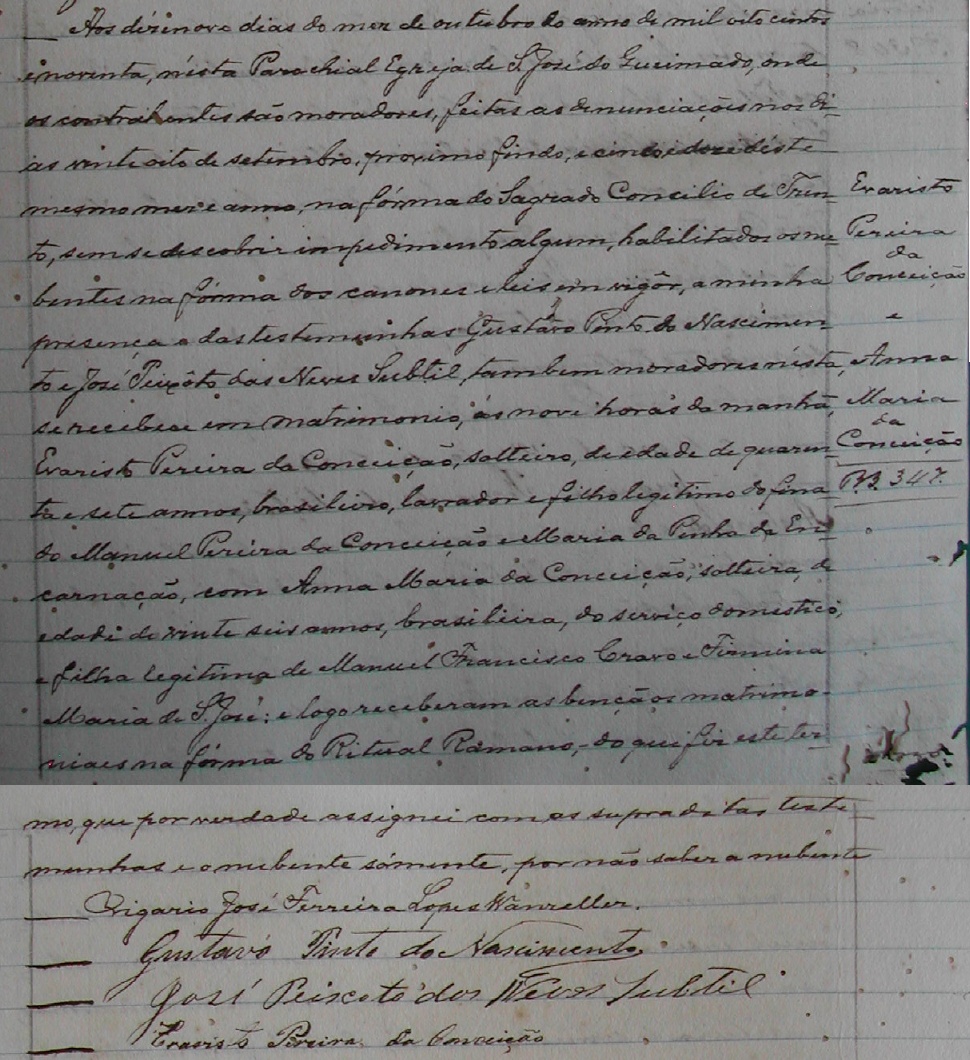 Aos dézenove dias do mez de outubro do anno de mil oito centos
e noventa, nésta Parochial Egreja de S. José do Queimado, onde
os contrahentes são moradores, feitas as denunciações nos di-
as vinte oito de setembro, proximo findo, e cinco e doze déste
mesmo mez e anno, na fórma do Sagrado Concilio de Tren-
to, sem se descobrir impedimento algum, habilitados os nu-
bentes na fórma dos canones e leis em vigôr, a minha
presença e das testemunhas Gustavo Pinto do Nascimen-
to e José Peixôto das Neves Subtil, tambem moradores nésta,
se recebeu em matrimonio, ás nove horas da manhã,
Evaristo Pereira da Conceição, solteiro, de edade de quaren-
ta e sete annos, brasileiro, lavrador e filho legitimo do fina-
do Manuel Pereira da Conceição e Maria da Penha da En-
carnação, com Anna Maria da Conceição, solteira, de
edade de vinte seis annos, brasileira, do serviço domestico,
e filha legitima de Manuel Francisco Cravo e Firmina
Maria de S. José: e logo receberam as bençãos matrimo-
niaes na fórma do Ritual Romano, do que fiz este ter-
mo, que por verdade assignei com as supraditas teste-
munhas e o nubente sómente, por não saber a nubente
Vigario José Ferreira Lopes Wanzeller.
Gustavo Pinto do Nascimento
José Peixoto das Neves Subtil
Evaristo Pereira da Conceição
Evaristo
Pereira
da
Conceição
e
Anna
Maria
da
Conceição
347.